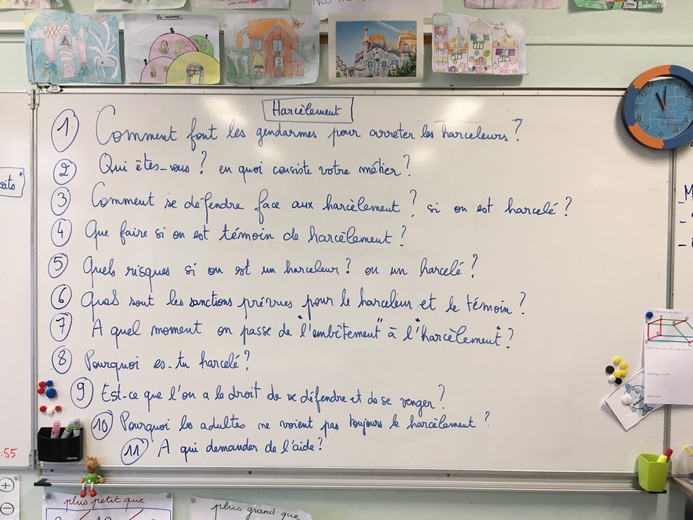 Harcèlement
1 Comment font les gendarmes pour arreter les harceleurs ?
2 Qui êtes-vous ? en quoi consiste votre métier ?
3 Comment se défendre face aux harcèlement ? si on est harcelé ?
4 Que faire si on est témoin de harcèlement ?
5 Quels risques si on est un harceleur ? ou un harcelé ?
6 Quels sont les sanctions prévues pour le harceleur et le témoin ?
7 A quel moment on passe de "l'embêtement" à l'"harcèlement" ?
8 Pourquoi es-tu harcelé ?
9 Est-ce que l'on a le droit de se défendre et de se venger ?
10 Pourquoi les adultes ne voient pas toujours le harcèlement ?
11 A qui demander de l'aide ?
:55
plus petit que
plus grand que